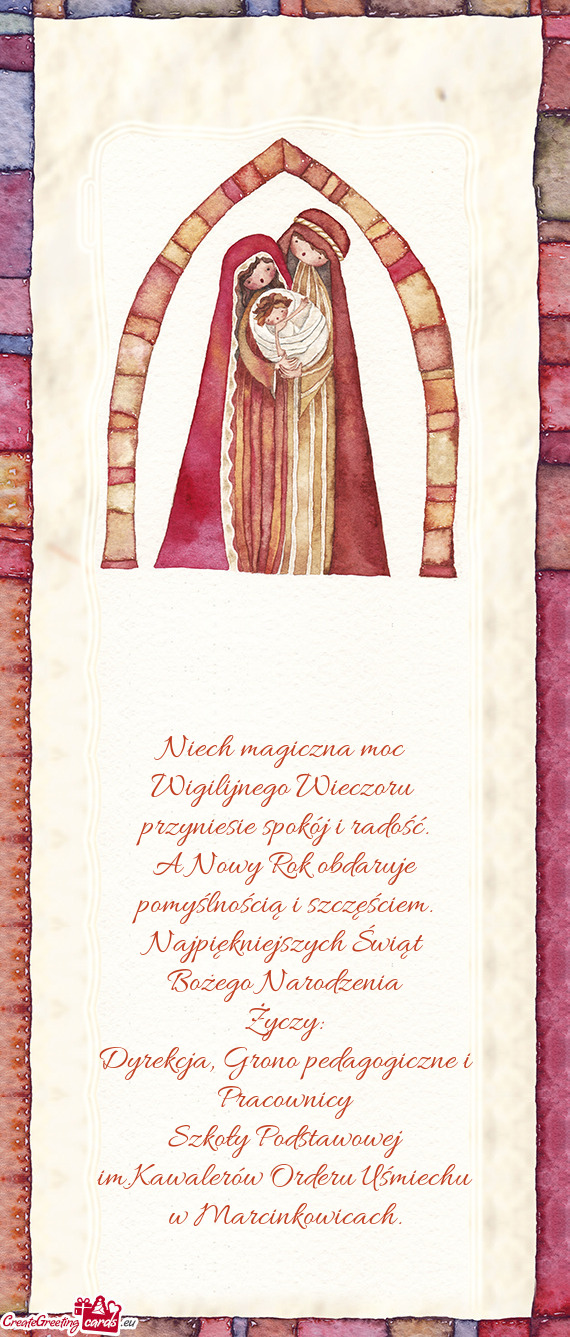 Niech magiczna moc
Wigilijnego Wieczoru
przyniesie spokój i radość.
A Nowy Rok obdaruje
pomyślnością i szczęściem.
Najpiękniejszych Świąt
Bożego Narodzenia
Życzy:
Dyrekcja, Grono pedagogiczne i
Pracownicy
Szkoły Podstawowej
im.Kawalerów Orderu Uśmiechu
w Marcinkowicach.
CreateGreeting cards .eu